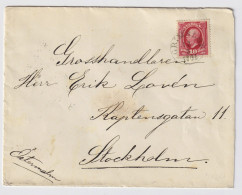 Grosshandlaren
Herr Erik Lovén
Kaptensgatan 11
Stockholm.
10